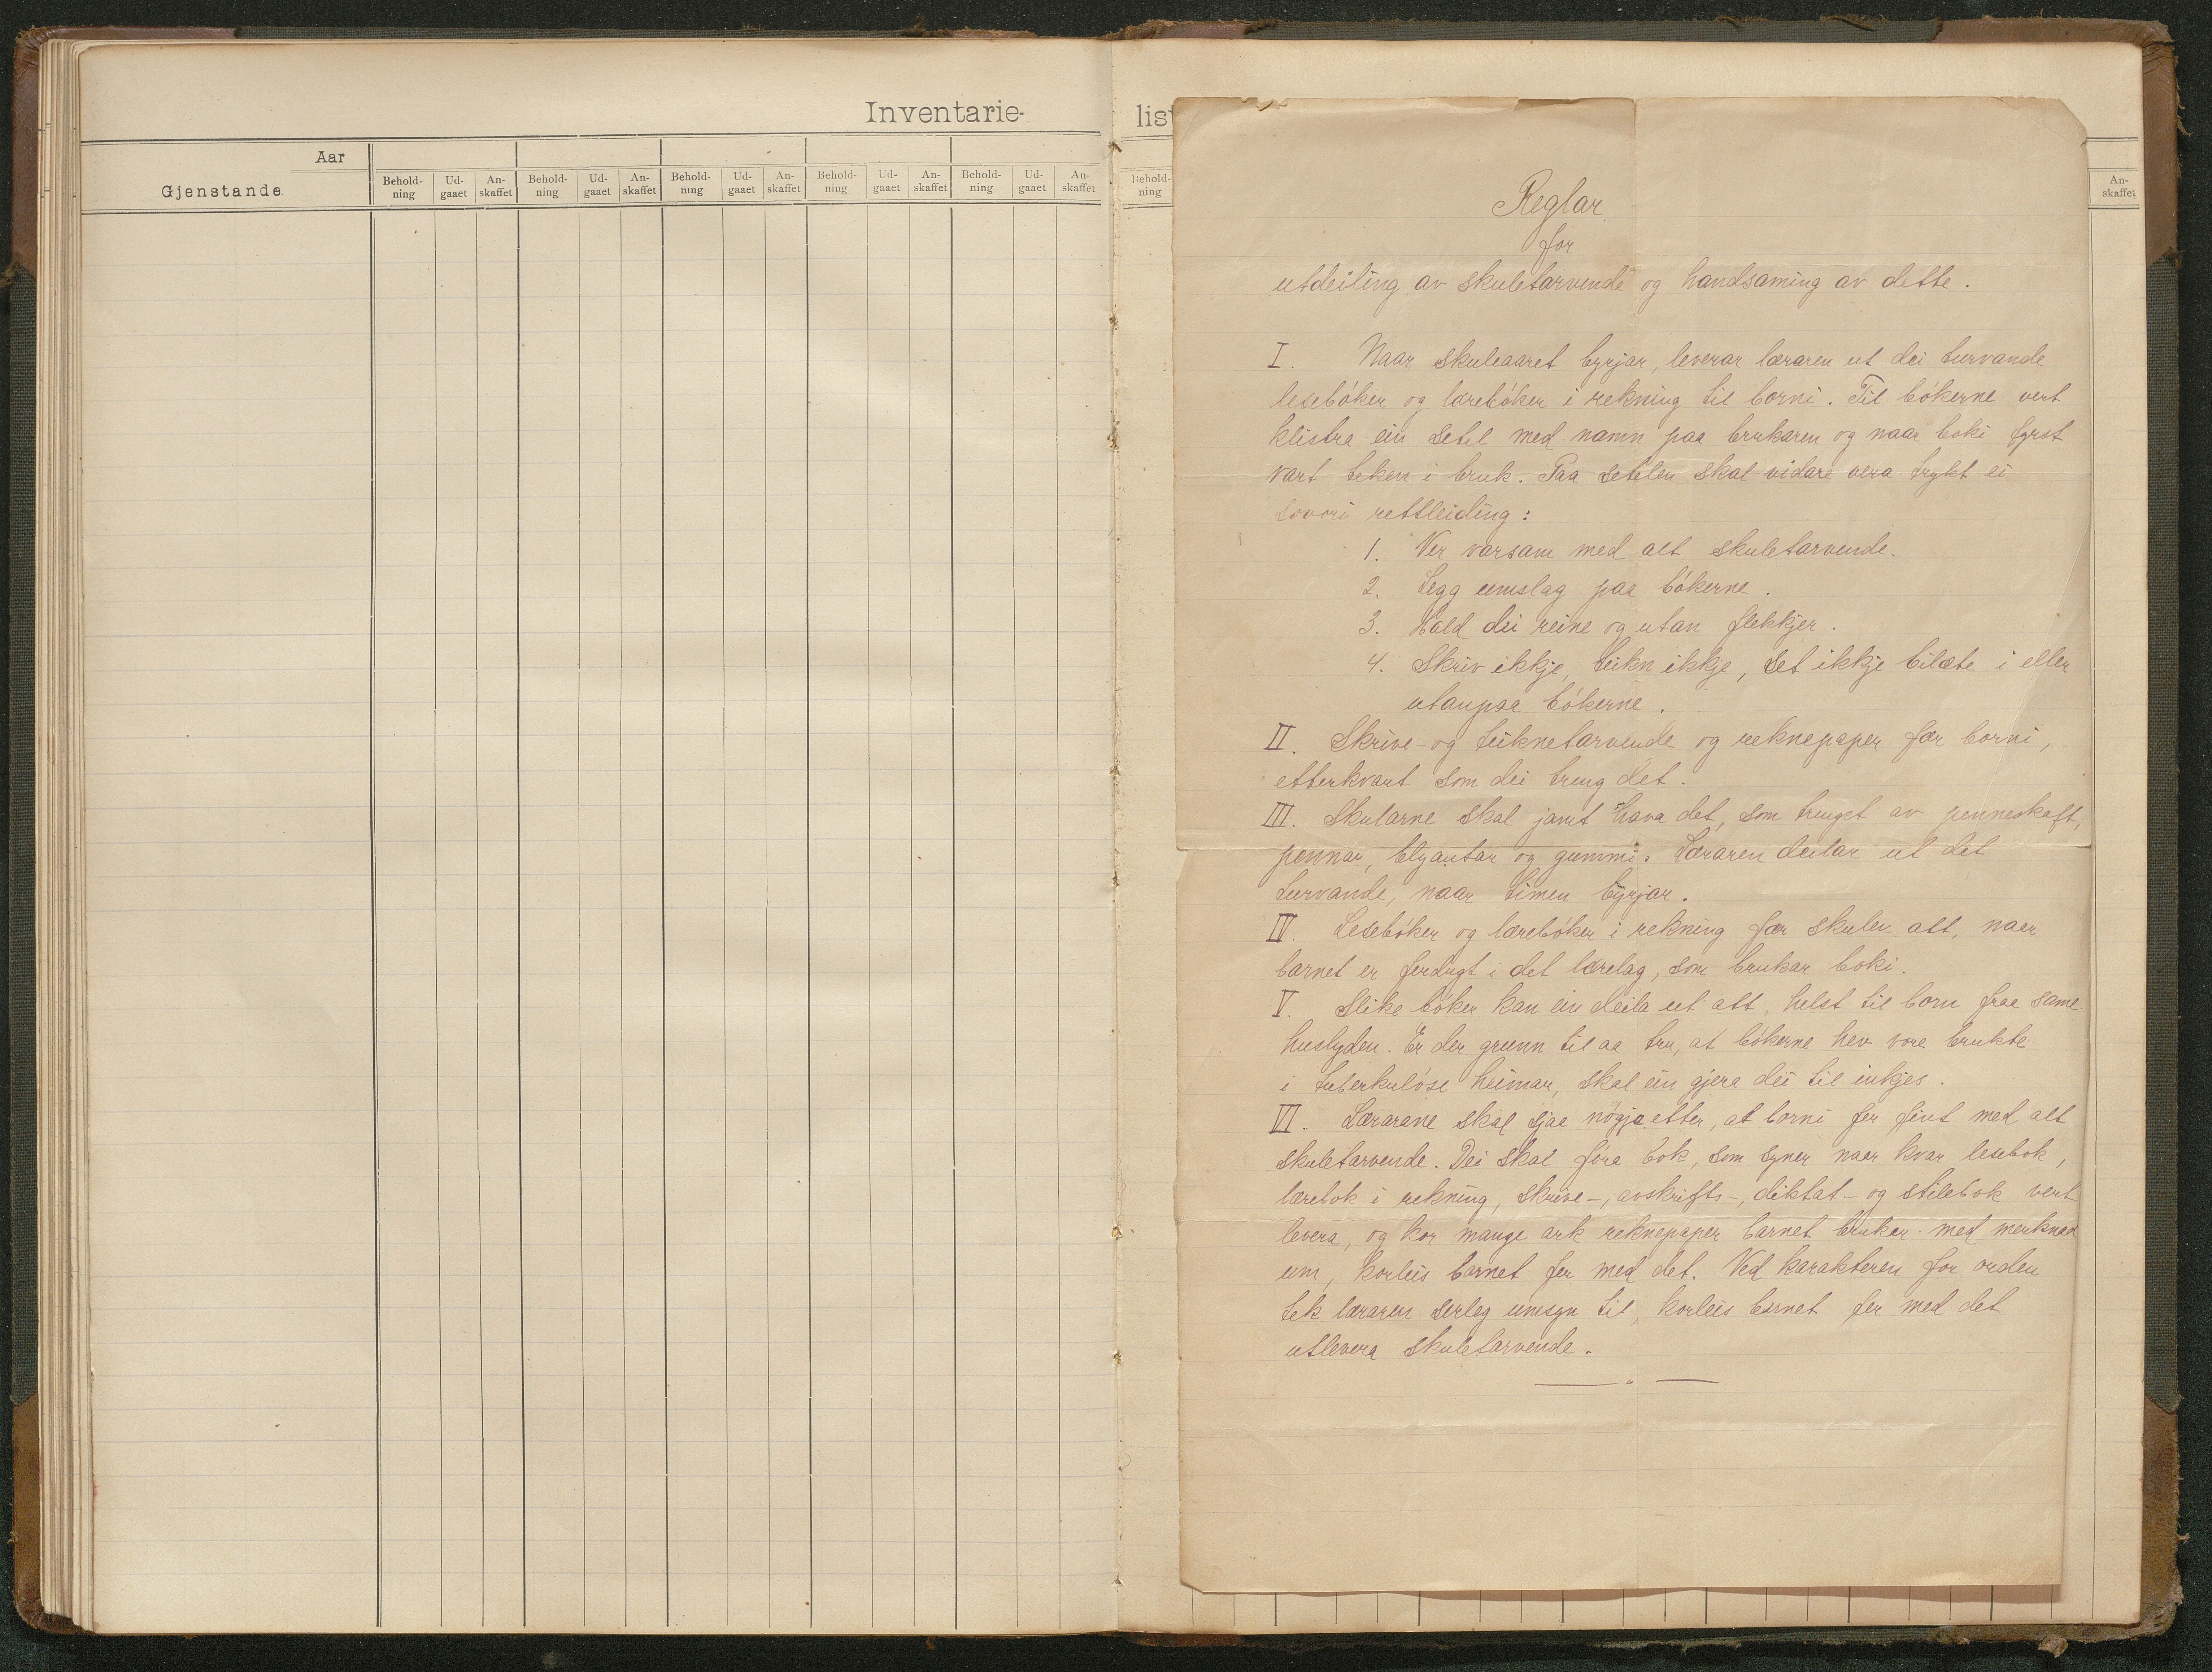 Inventarie-
Aar
Gjenstande.
Behold- Ud- An- Behold- Ud- An- Behold- Ud- An- Behold- Ud- An- Behold- Ud- An-
ning gaaet skaffet ning gaaet skaffet ning gaaet skaffet ning gaaet skaffet ning gaaet skaffet
lis
Behold-
ning
An-
skaffet
Reglar
for
utdeiling av skuletarvende og handsaming av dette.
I. Naar skuleaaret byrjar, leverar læraren ut dei turvande
lesebóker og lærebóker i rekning til borni. Til bókerne vert
klistra ein setel med namn paa brukaren og naar boki fyrst
vart teken i bruk. Paa setelen skal vidare vera trykt ei
sovori rettleiding:
1. Ver varsam med alt skuletarvende.
2. Legg umslag paa bókerne.
3. Hald dei reine og utan flekkjer.
4. Skriv ikkje, teikn ikkje, set ikkje bilæte i eller
utanpaa bókerne.
II. Skrive- og teiknetarvende og reknepaper fær borni,
etterkvart som dei treng det.
III. Skularne skal jamt hava det, som trengst av penneskaft,
pennar, blyantar og gummi. Læraren deilar ut det
turvande, naar timen byrjar.
IV. Lesebóker og lærebóker i rekning fær skulen att, naar
barnet er ferdugt i det lærelag, som brukar boki.
V. Slike bóker kan ein deila ut att, helst til born fraa same
huslyden. Er der grunn til aa tru, at bókerne hev vore brukte
i tuberkulóse heimar, skal ein gjera dei til inkjes.
VI. Lærarane skal sjaa nögje etter, at borni fer fint med alt
skuletarvende. Dei skal föra bok, som syner naar kvar lesebok,
lærebok i rekning, skrive-, avskrifts-, diktat- og stilebok vert
levera, og kor mange ark reknepaper barnet brukar med merknad
um, korleis barnet fer med det. Ved karakteren for orden
tek læraren serleg umsyn til, korleis barnet fer med det
utlevera skuletarvende.